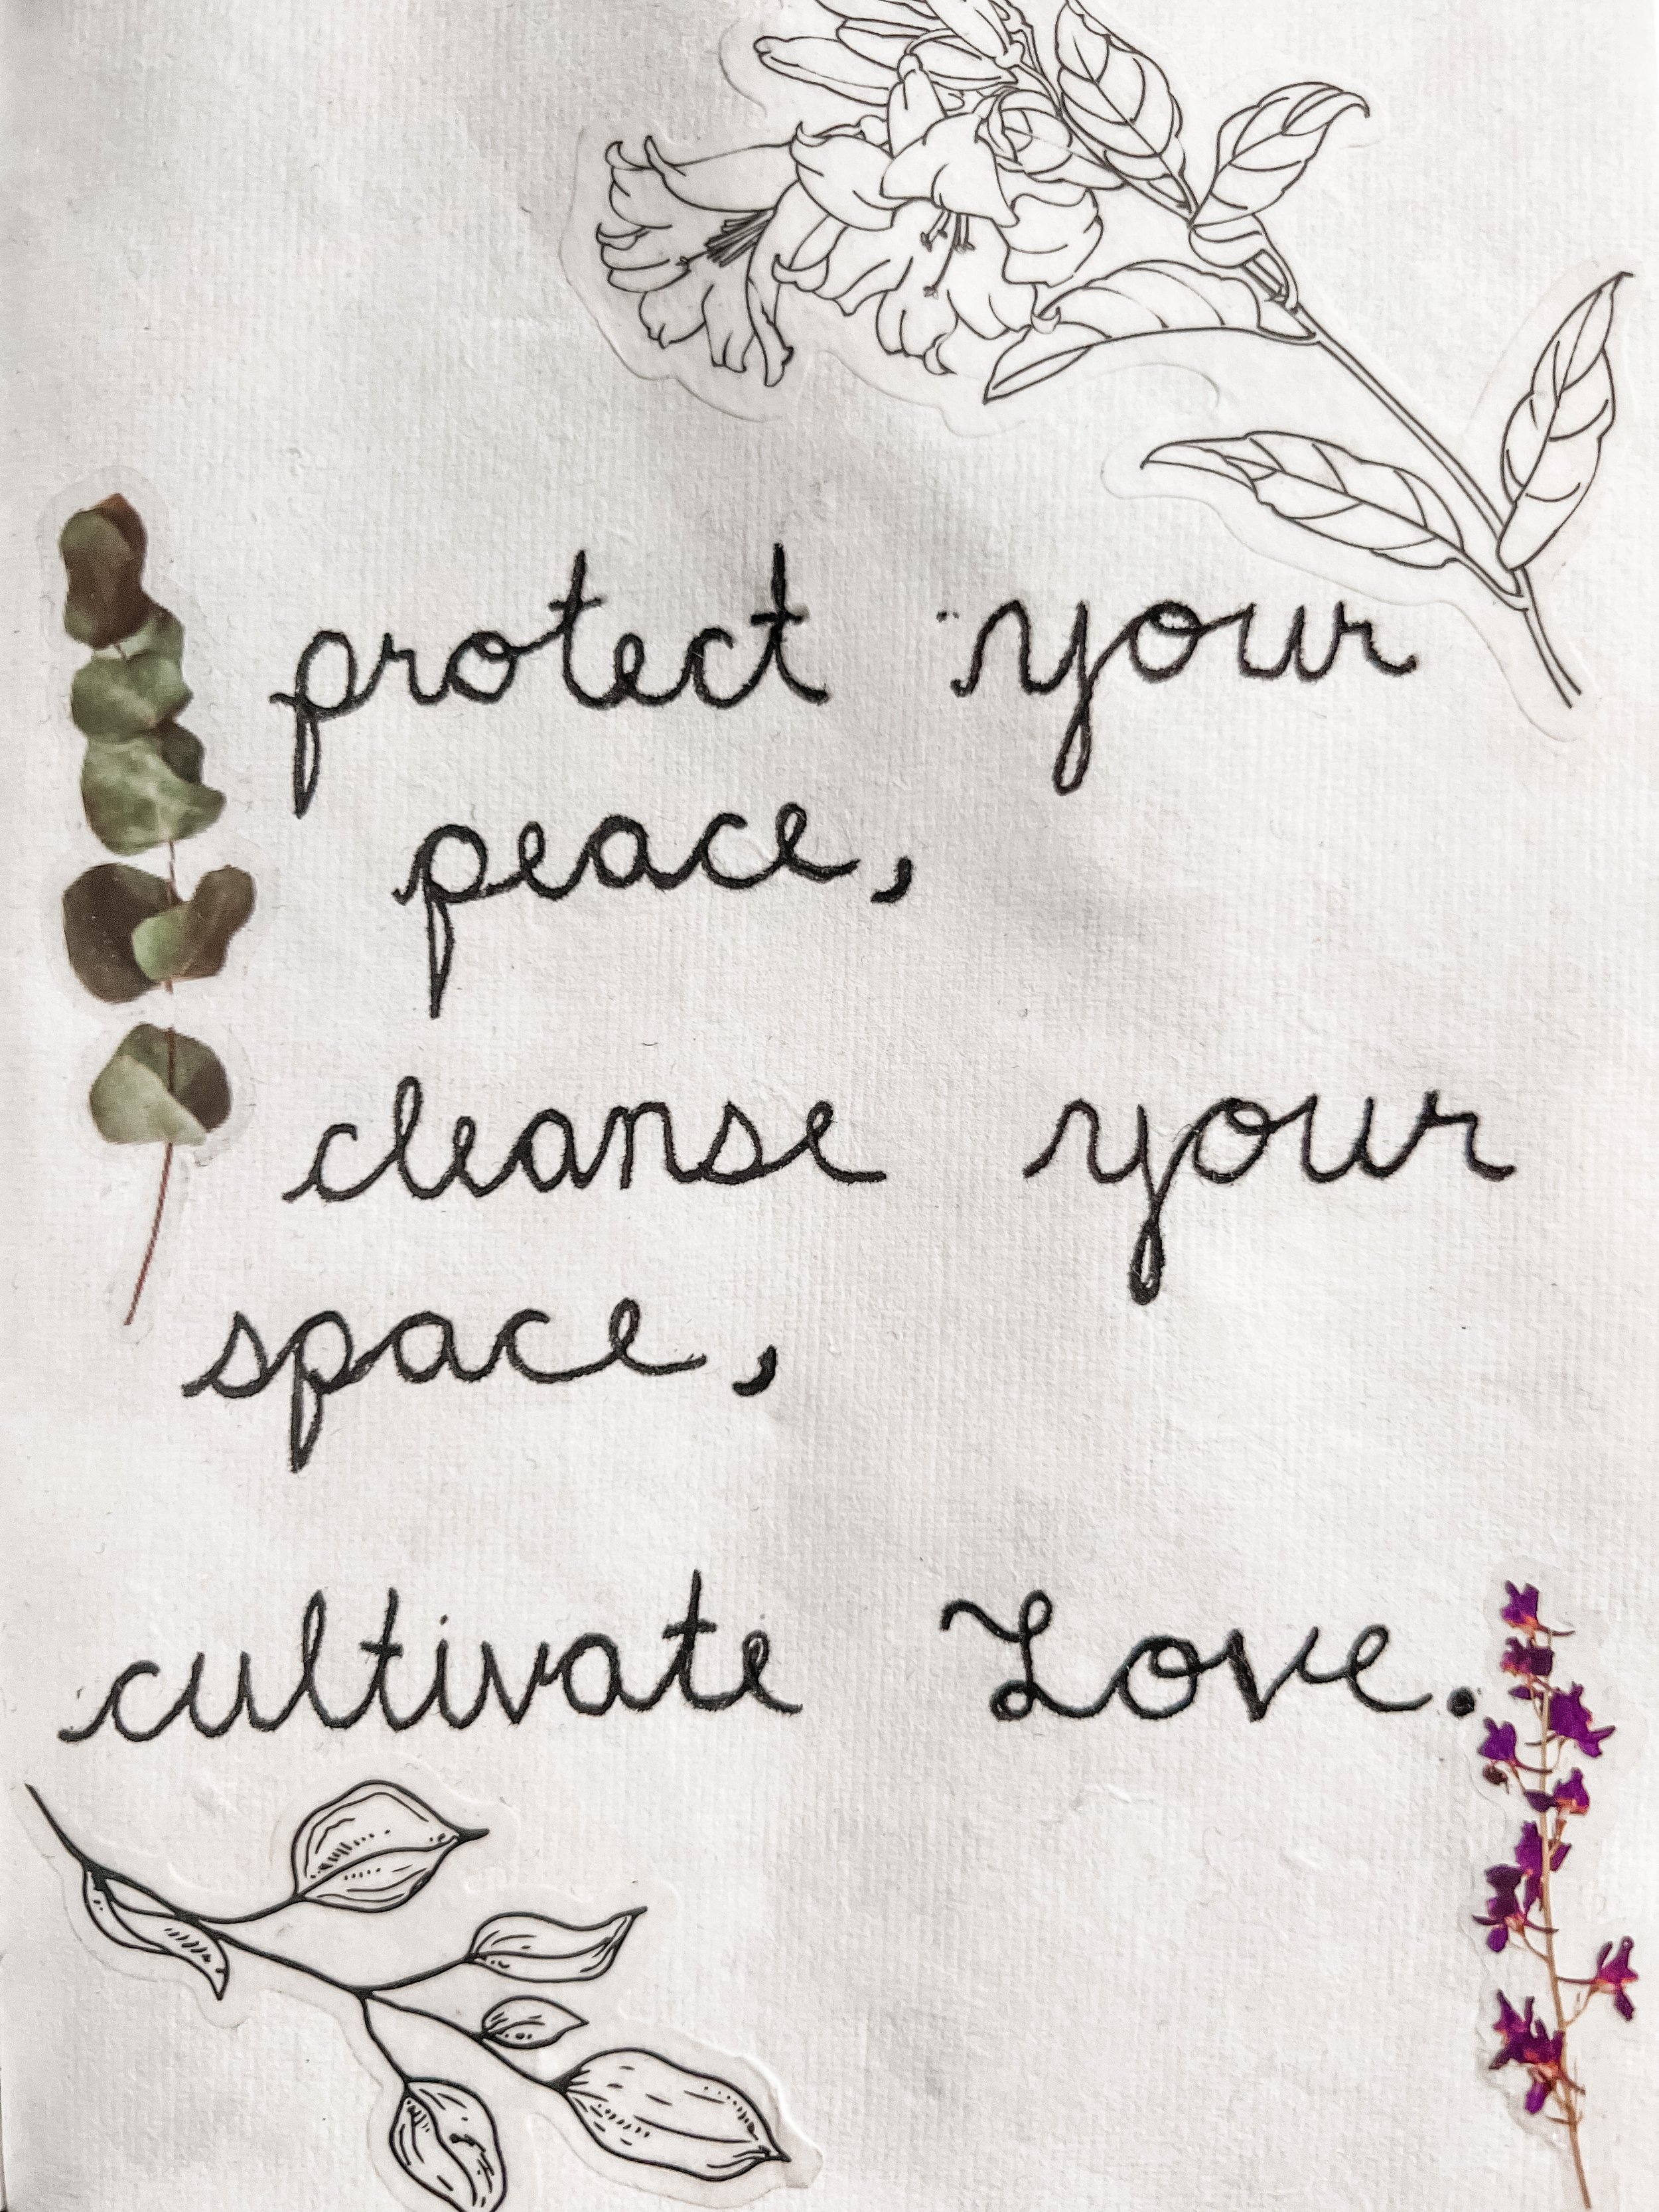 protect your
peace,
cleanse your
space,
cultivate Love.